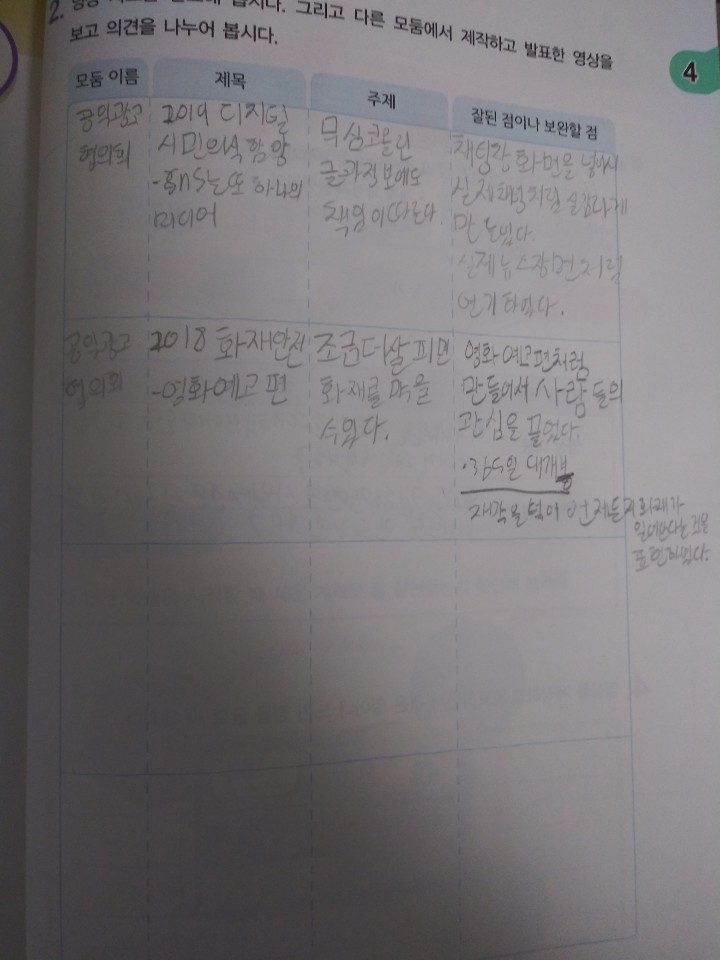 2. 영상
봅시다. 그리고 다른 모둠에서 제작하고 발표한 영상을
보고 의견을 나누어 봅시다.
4
모둠 이름 제목 주제 잘된 점이나 보완할 점
공익광고
협의회
2019 디지털
시민의식 함양
-SNS는 또 하나의
미디어
무심코 올린
글 정보에도
책임이 따른다.
채팅창 화면을 넣어서
실제 채팅처럼 실감나게
만들었다.
실제 뉴스장면처럼
연기하였다.
공익광고
협의회
2018 화재안전
-영화예고편
조금 더 살피면
화재를 막을
수 있다.
영화 예고편처럼
만들어서 사람들의
관심을 끌었다.
·365일 대개봉
자막을 넣어 언제든지 화재가
일어난다는 것을
표현하였다.